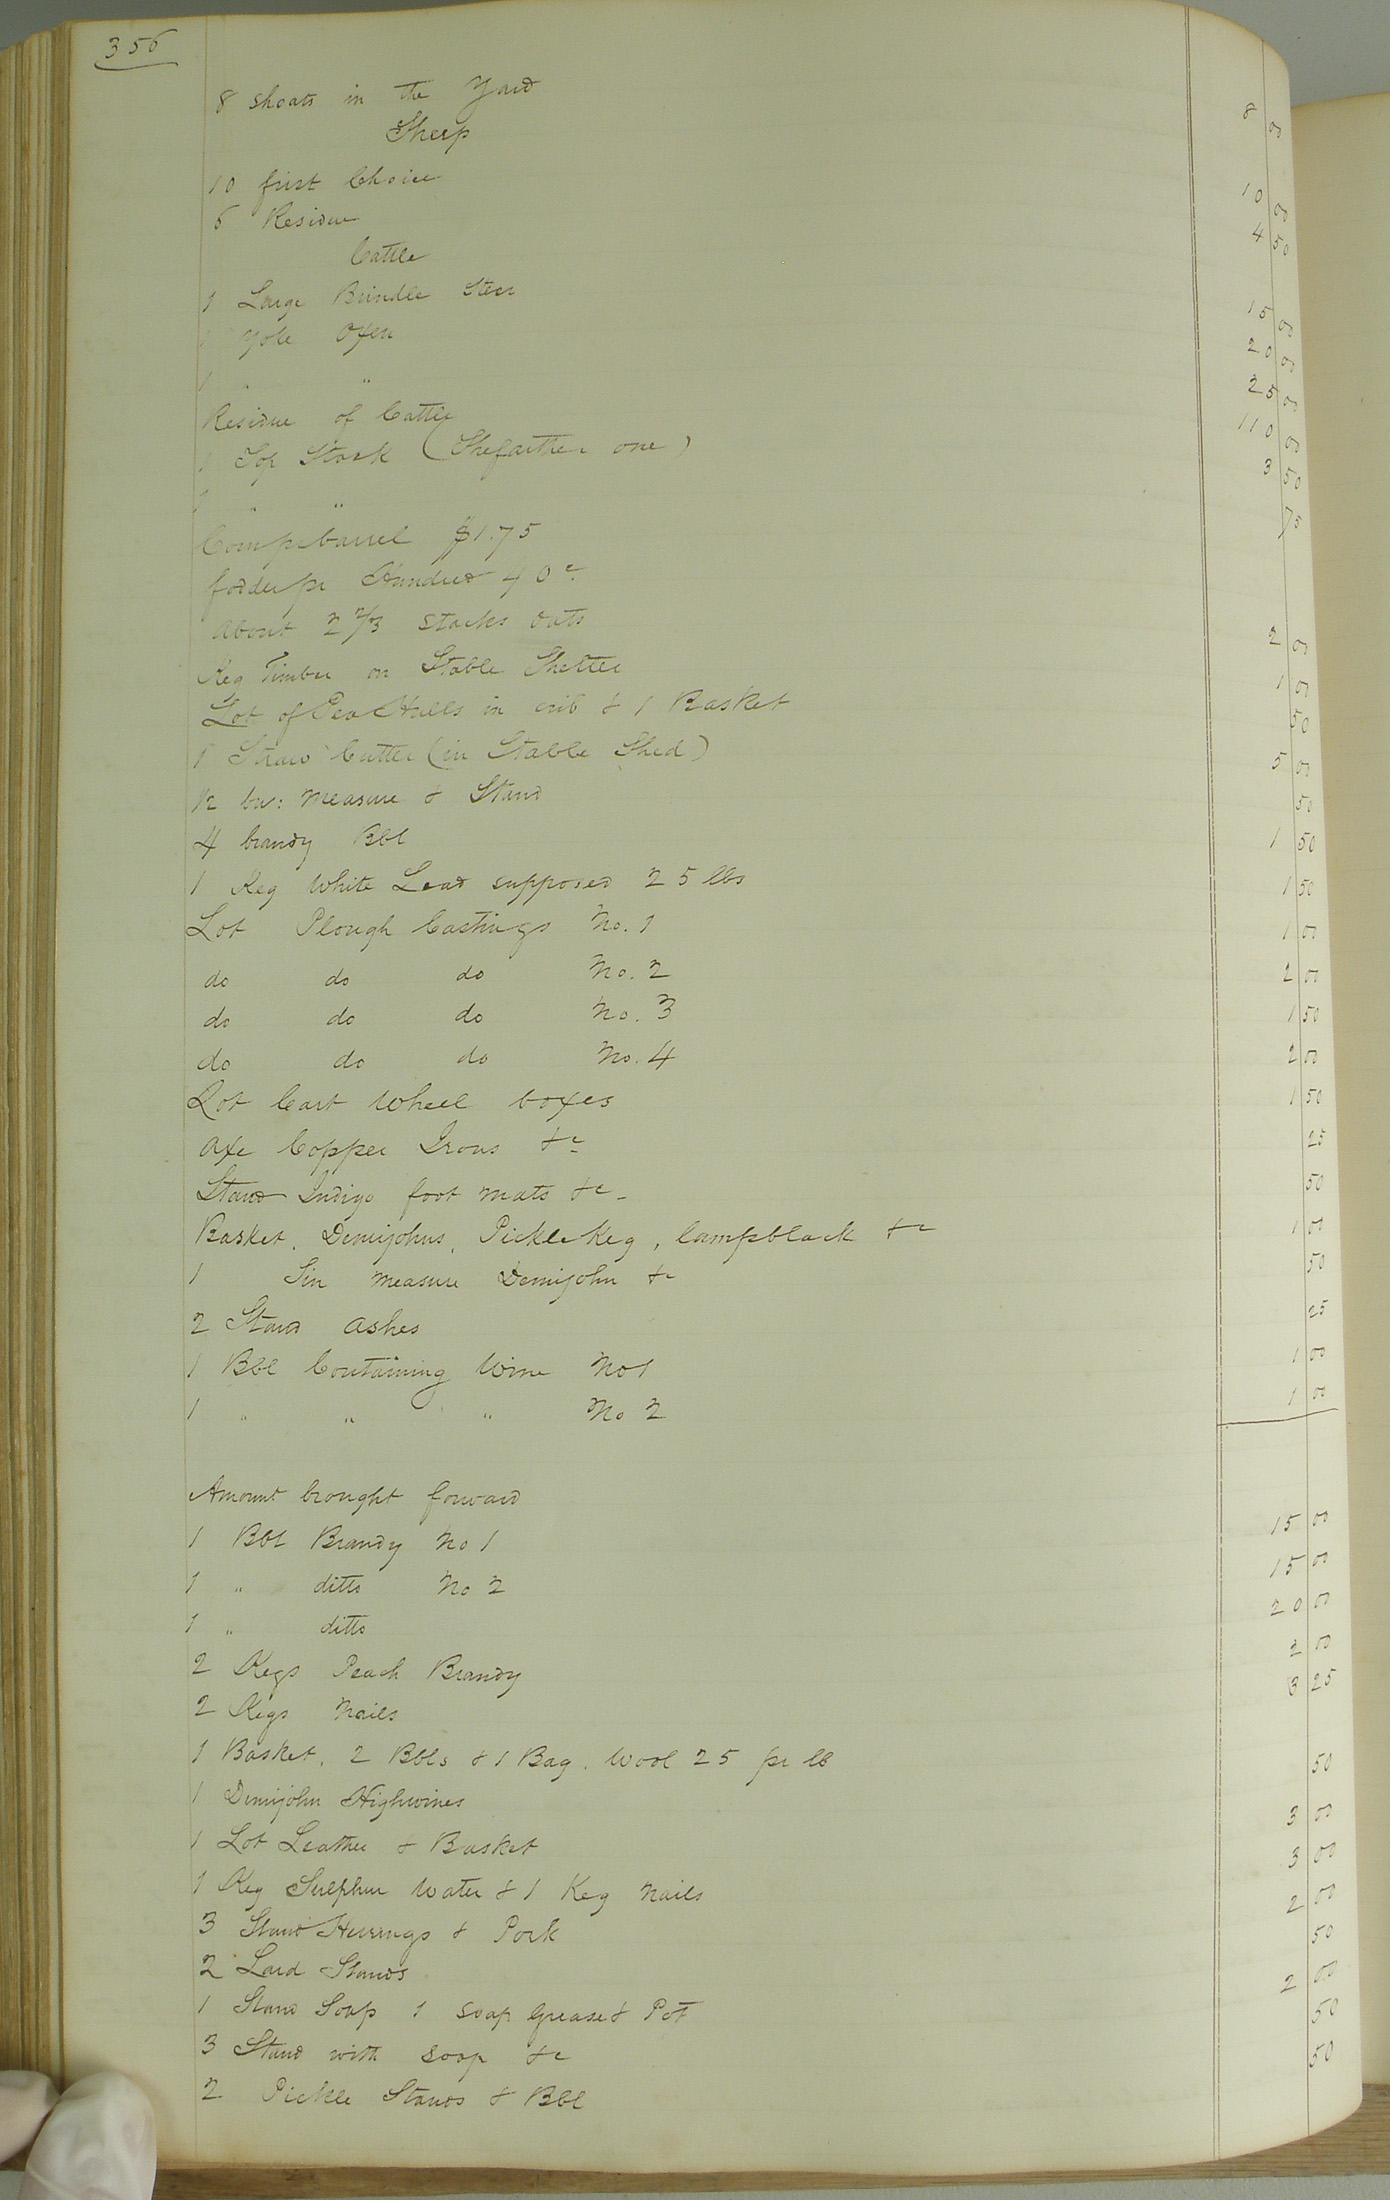 356
8 shoats in the Yard 8 00
Sheep
10 first Choice 10 00
6 Residue 4 50
Cattle
1 Large Brindle Steer 15 00
1 Yoke Oxen 20 00
1 " " 25 00
Residue of Cattle 110 00
1 Top Stack (The farther one) 3 50
1 " " 75
Corn pr barrel $1.75
fodder pr Hundred 40c
About 2 2/3 stacks oats 2 00
Keg Timber on Stable Shelter 1 00
Lot of Pea Hulls in crib & 1 Basket 50
1 Straw Cutter (in Stable Shed) 5 00
1/2 bu: measure & Stand 50
4 brandy Bbl 1 50
1 Keg White Lead supposed 25 lbs 1 50
Lot Plough Castings No. 1 1 00
do do do No. 2 2 00
do do do No. 3 1 50
do do do No. 4 2 00
Lot Cart Wheel boxes 1 50
Axe Copper Irons &c 25
Stand Indigo foot mats &c - 50
Basket, Demijohns, Pickle Keg, lampblack &c 1 00
1 Tin measure Demijohn &c 50
2 Stand Ashes 25
1 Bbl Containing Wine No 1 1 00
1 " " " No 2 1 00
Amount brought forward
1 Bbl Brandy No 1 15 00
1 " ditto No 2 15 00
1 " ditto 20 00
2 Kegs Peach Brandy 2 00
2 Kegs Nails 3 25
1 Basket, 2 Bbls & 1 Bag. Wool 25 pr lb
1 Demijohn Highwines 50
1 Lot Leather & Basket 3 00
1 Keg Sulphur Water & 1 Keg Nails 3 00
3 Stand Herrings & Pork 2 00
2 Lard Stands 50
1 Stand Soap 1 soap grease & Pot 2 00
3 Stand with soap &c 50
2 Pickle Stands & Bbl 50